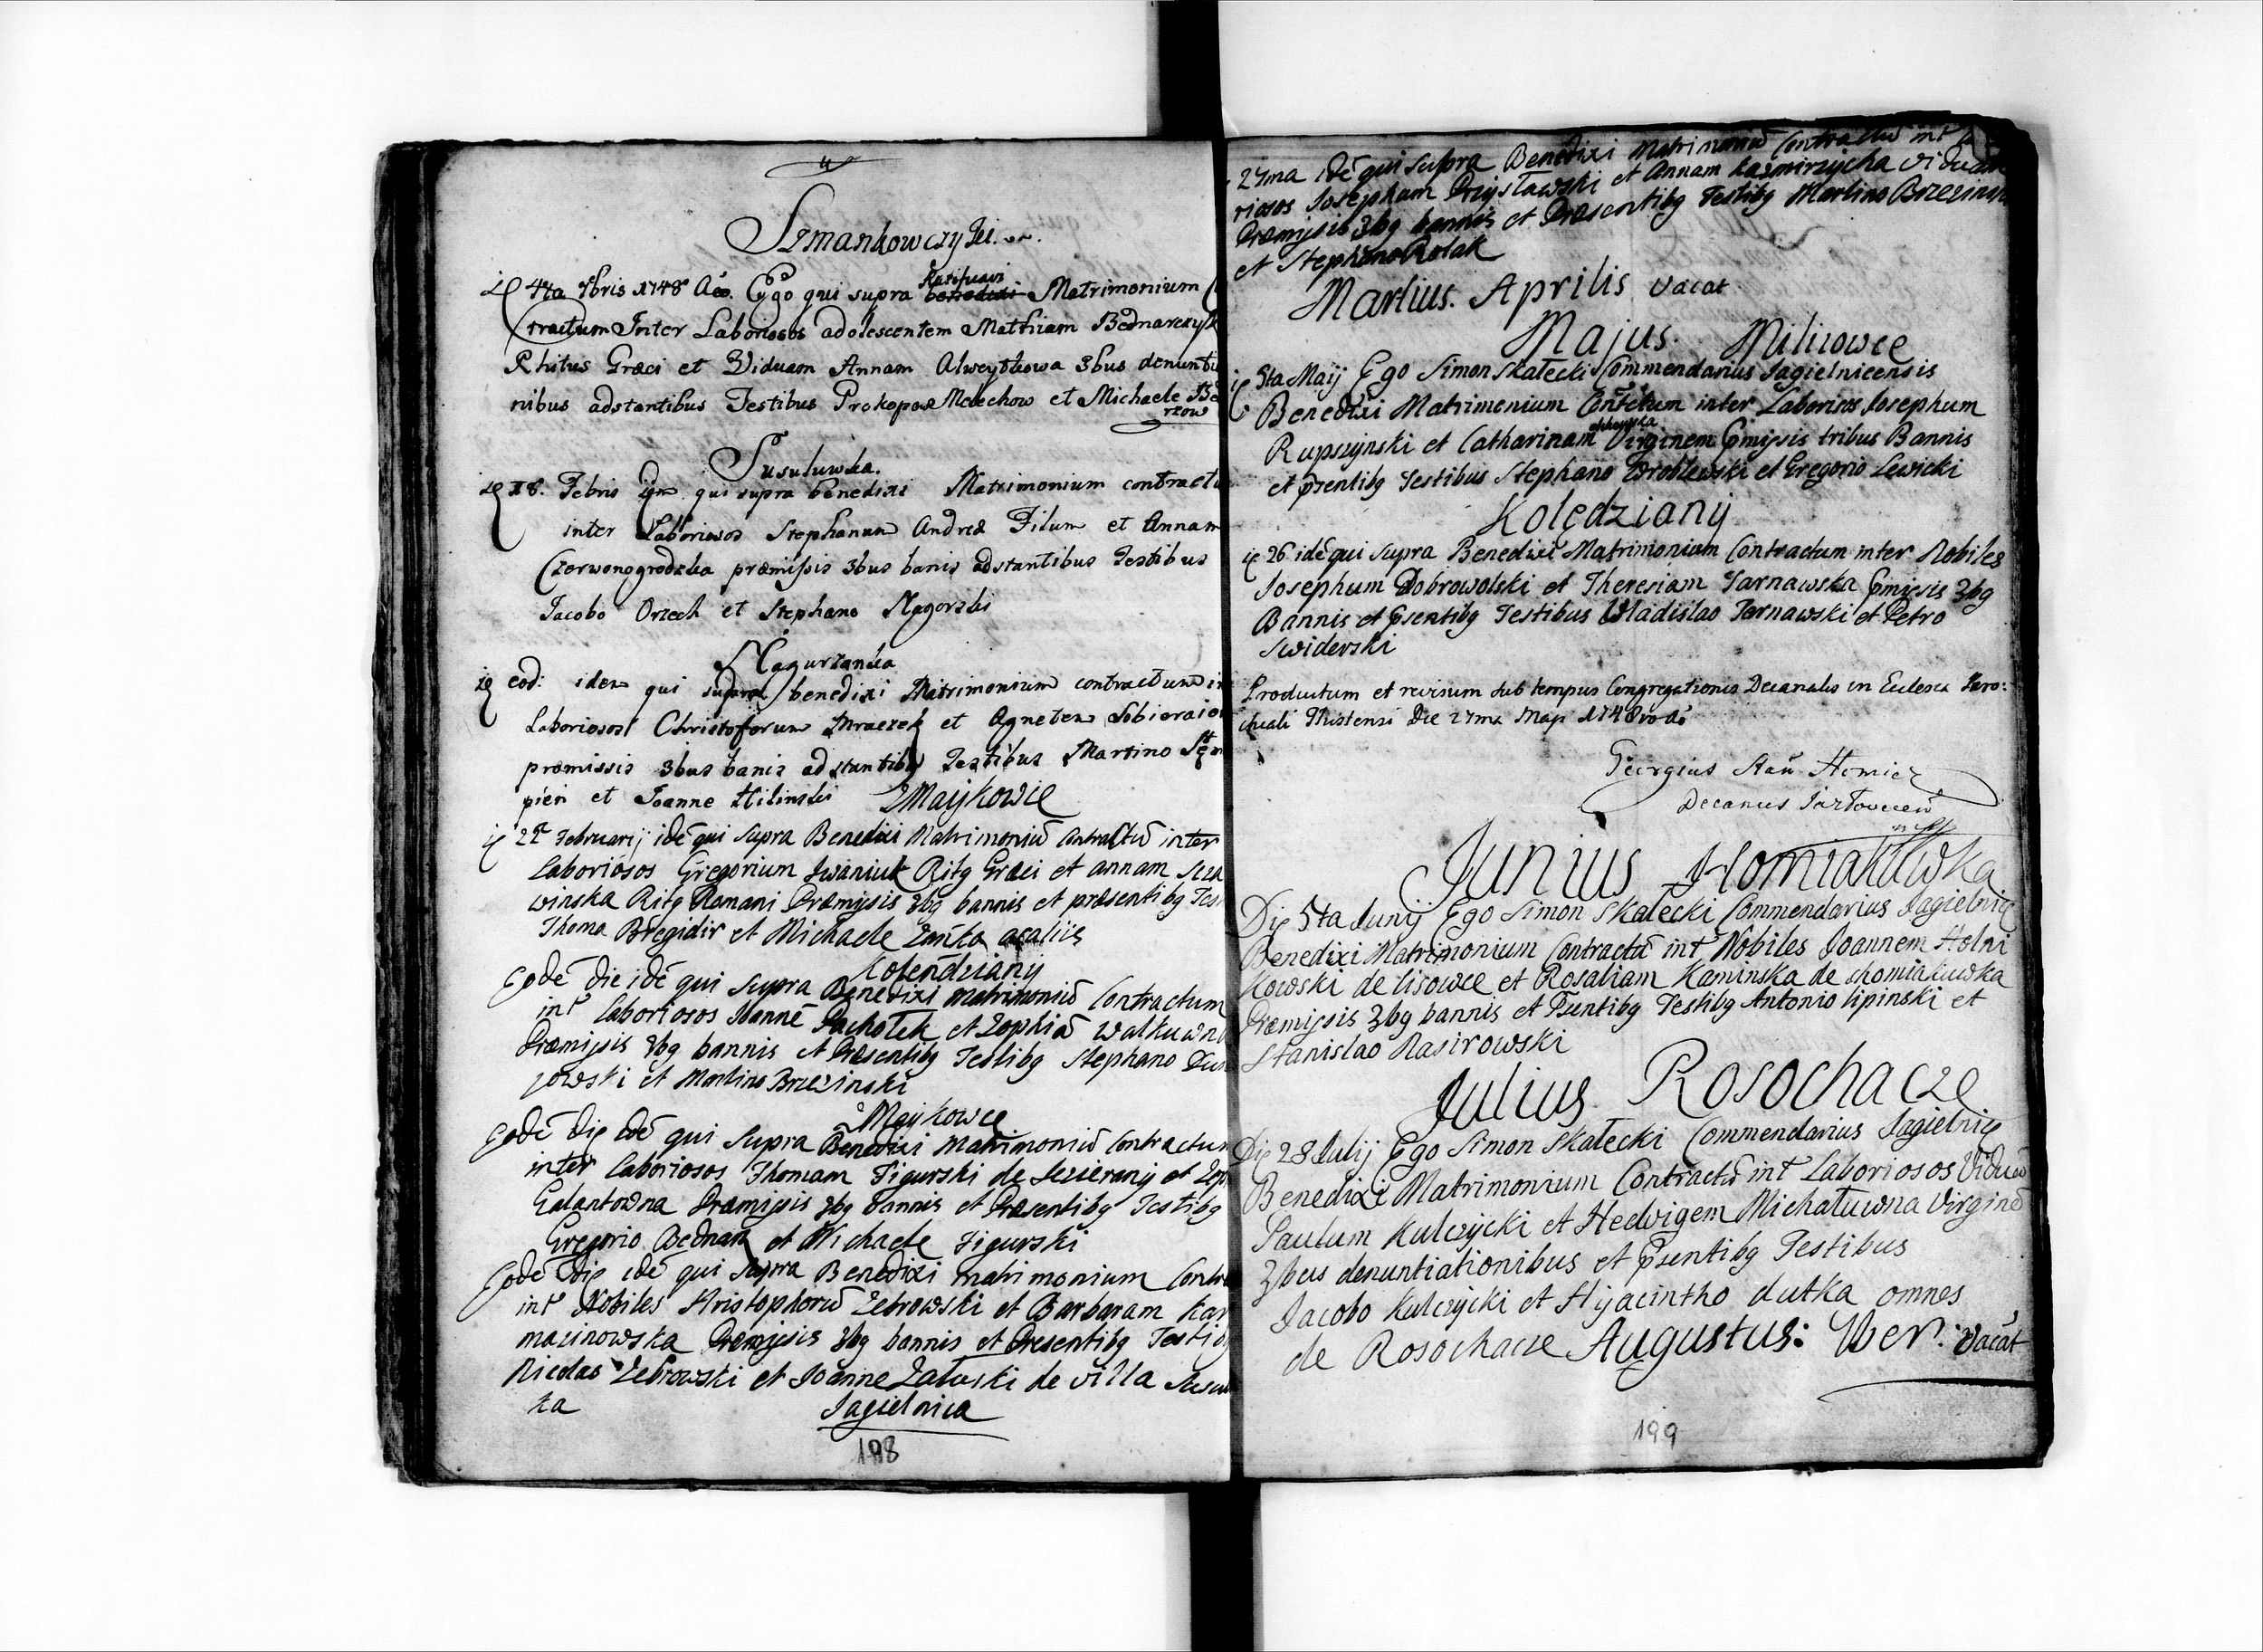 4
Szmankowczyki
Die 4ta 7bris 1748 Ao. Ego qui supra Ratificavi benedixi Matrimonium
tractum Inter Laboriosos adolescentem Mathiam Bednarczyk
Rhitus Græci et Viduam Annam 3bus denuntia
nibus adstantibus Testibus Prokopo Melechow et Michaele Be
rzow
Susuluwka.
Die 18. Febris qui supra benedixi Matrimonium contractu
inter Laboriosos Stephanum Andreæ Filum et Annam
Czerwonogrodzka præmissis 3bus banis adstantibus Testibus
Jacobo Orzech et Stephano Nagorski
Nagurzanka
Die eod: idem qui supra benedixi Matrimonium contractum in
Laboriosos Christoforum Mraczek et Agnetem
præmissis 3bus banis adstantibg Testibus Martino
pień et Joanne Hilinski Maykowce
Die 22 Februarij idē qui supra Benedixi Matrimoniū contractū inter
Laboriosos Gregorium Iwaniuk Ritg Græci et annam Scza
winska Ritg Romani Præmissis 3bg bannis et præsentibg Tes
Thoma Bregidir et Michaele Zańko acaliis
Kolendziany
Eodē die idē qui supra Benedixi matrimoniū Contractum
int Laboriosos Joannē Pachołek et Zophiā
Præmissis 3bg bannis et Præsentibg Testibg Stephano
jowski et Martino Brzezinski
Maykowce
Eodē die idē qui supra Benedixi Matrimoniū Contractum
inter Laboriosos Thomam Figurski de Jezierany et Zop
Galantowna Præmissis 3bg bannis et Præsentibg Testibg
Gregorio Bednarz et Michaele Figurski
Eodē die idē qui supra Benedixi matrimonium Contra
int Nobiles Hristophorū Zebrowski et Barbaram Kar
macinowska Præmissis 3bg bannis et Presentibg Testib
Nicolao Zebrowski et Joanne Załuski de villa Susu
ka
Jagielnica
198
27ma idē qui supra Benedixi Matrimoniū Contractū int La
riosos Josephum Przysławski et Annam Kazmirzycha viduam
Præmissis 3bg bannis et Præsentibg Testibg Martino Brzezinski
et Stephano Rolak
Martius. Aprilis vacat
Majus. Milirowce
Die 5ta Maij Ego Simon Skałecki Commendarius Jagielnicensis
Benedixi Matrimonium Contctum inter Laboriosos Josephum
Rupszynski et Catharinam Virginem Pmissis tribus Bannis
et psentibg Testibus Stephano Wroblewski et Gregorio Lewicki
Kolędziany
Die 26 idē qui supra Benedixi Matrimonium Contractum inter Nobiles
Josephum Dobrowolski et Theresiam Tarnawska Pmissis 3bg
Bannis et Psentibg Testibus Wladislao Tarnawski et Petro
Swiderski
Productum et revisum sub tempus Congregationis Decanalis in Ecclesia Paro:
chiali Tlustensi Die 27ma Maji 1748vo Ao
Georgius Homicz
Decanus Jazłovecen
Junius Homiakuwka
Die 5ta Junij Ego Simon Skałecki Commendarius Jagielnic
Benedixi Matrimonium Contractū int Nobiles Joannem Holni
kowski de lisowce et Rosaliam Kaminska de chomiakuwka
Præmissis 3bg bannis et Psentibg Testibg Antonio lipinski et
Stanislao Nasirowski
Julius Rosochacze
Die 28 Julij Ego Simon Skałecki Commendarius Jagielnic
Benedixi Matrimonium Contractū int Laboriosos Viduū
Paulum Kulczycki et Hedvigem Michałuwna Virginē
3bus denuntiationibus et Psentibg Testibus
Jacobo Kulczycki et Hyjacintho dutka omnes
de Rosochacze Augustus: 7ber: vacat
199